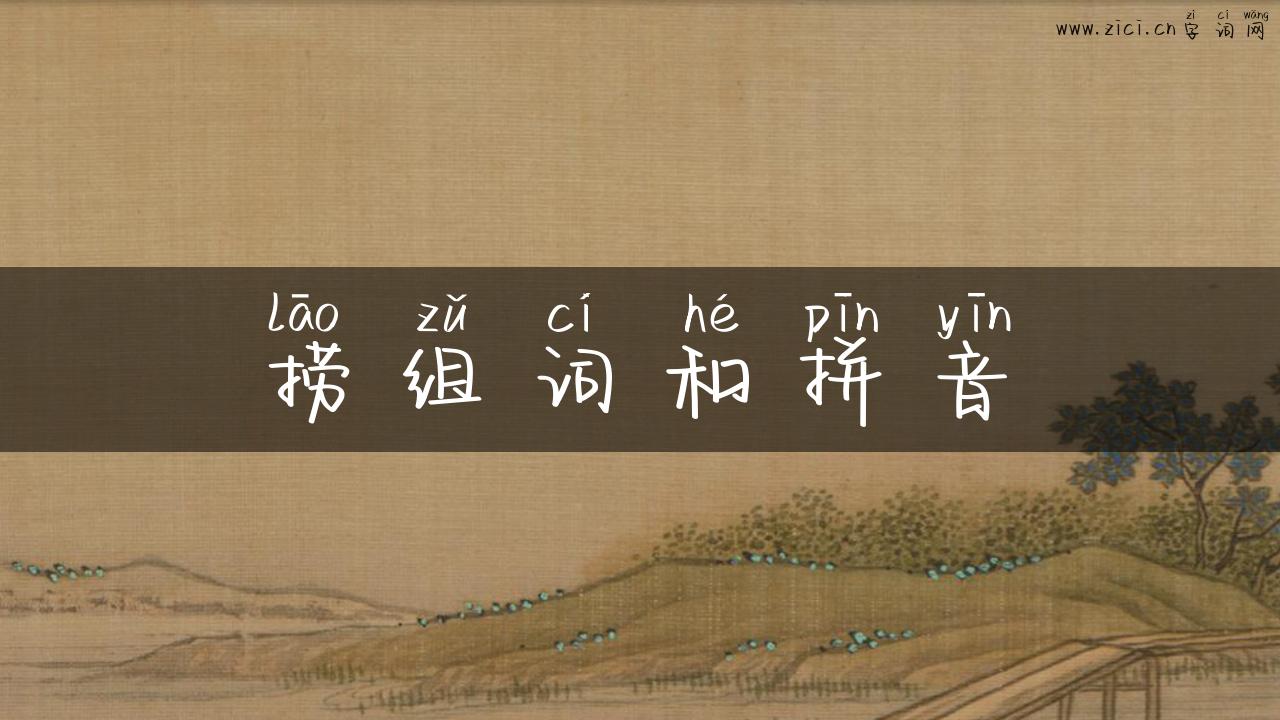 zì cí wǎng
www.zici.cn字词网
lāo zǔ cí hé pīn yīn
捞组词和拼音